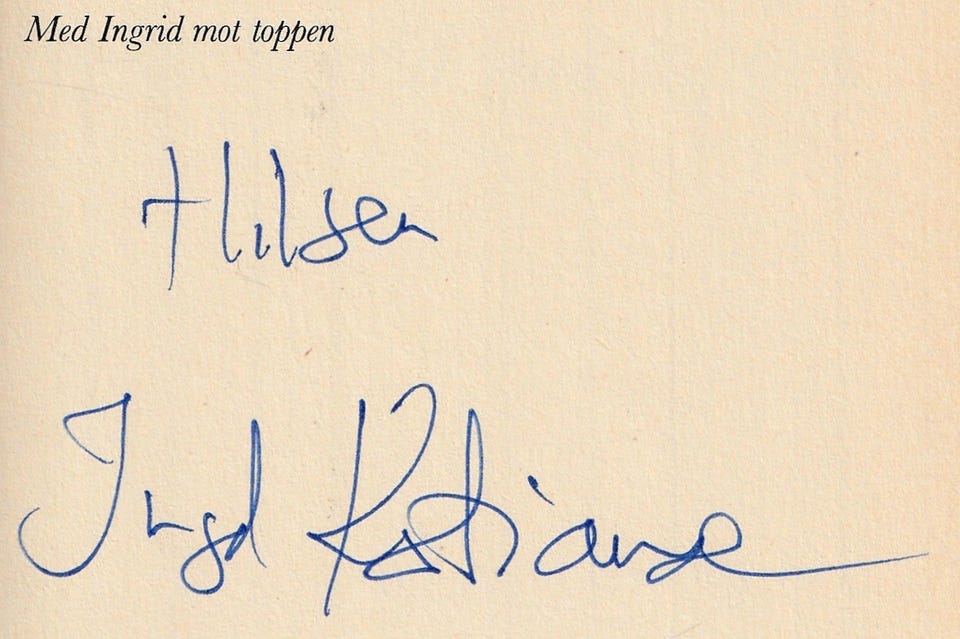 Med Ingrid mot toppen
Hilsen
Ingrid Kristiansen